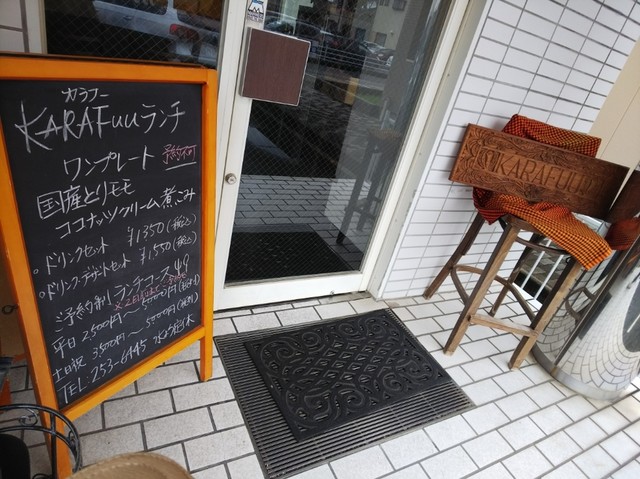 カラフー
KARAFuuランチ
ワンプレート 予約不可
国産とりモモ
ココナッツクリーム煮こみ
。ドリンクセット ¥1350(税込)
。ドリンク・デザートセット ¥1550(税込)
ご予約制 ランチコース
平日 2,500円〜5000円(税別)
土日祝 3,500円〜5000円(税別)
TEL:253-6445
KARAFUU